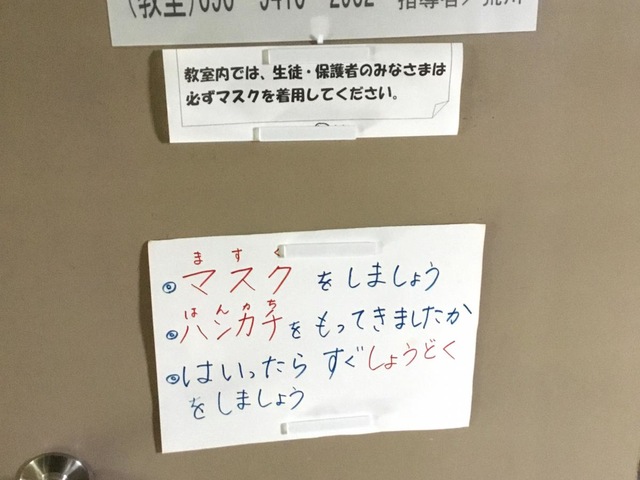 教室内では、生徒・保護者のみなさまは
必ずマスクを着用してください。
ますく
◎マスク をしましょう
はんかち
◎ハンカチをもってきましたか
◎はいったら すぐしょうどく
をしましょう